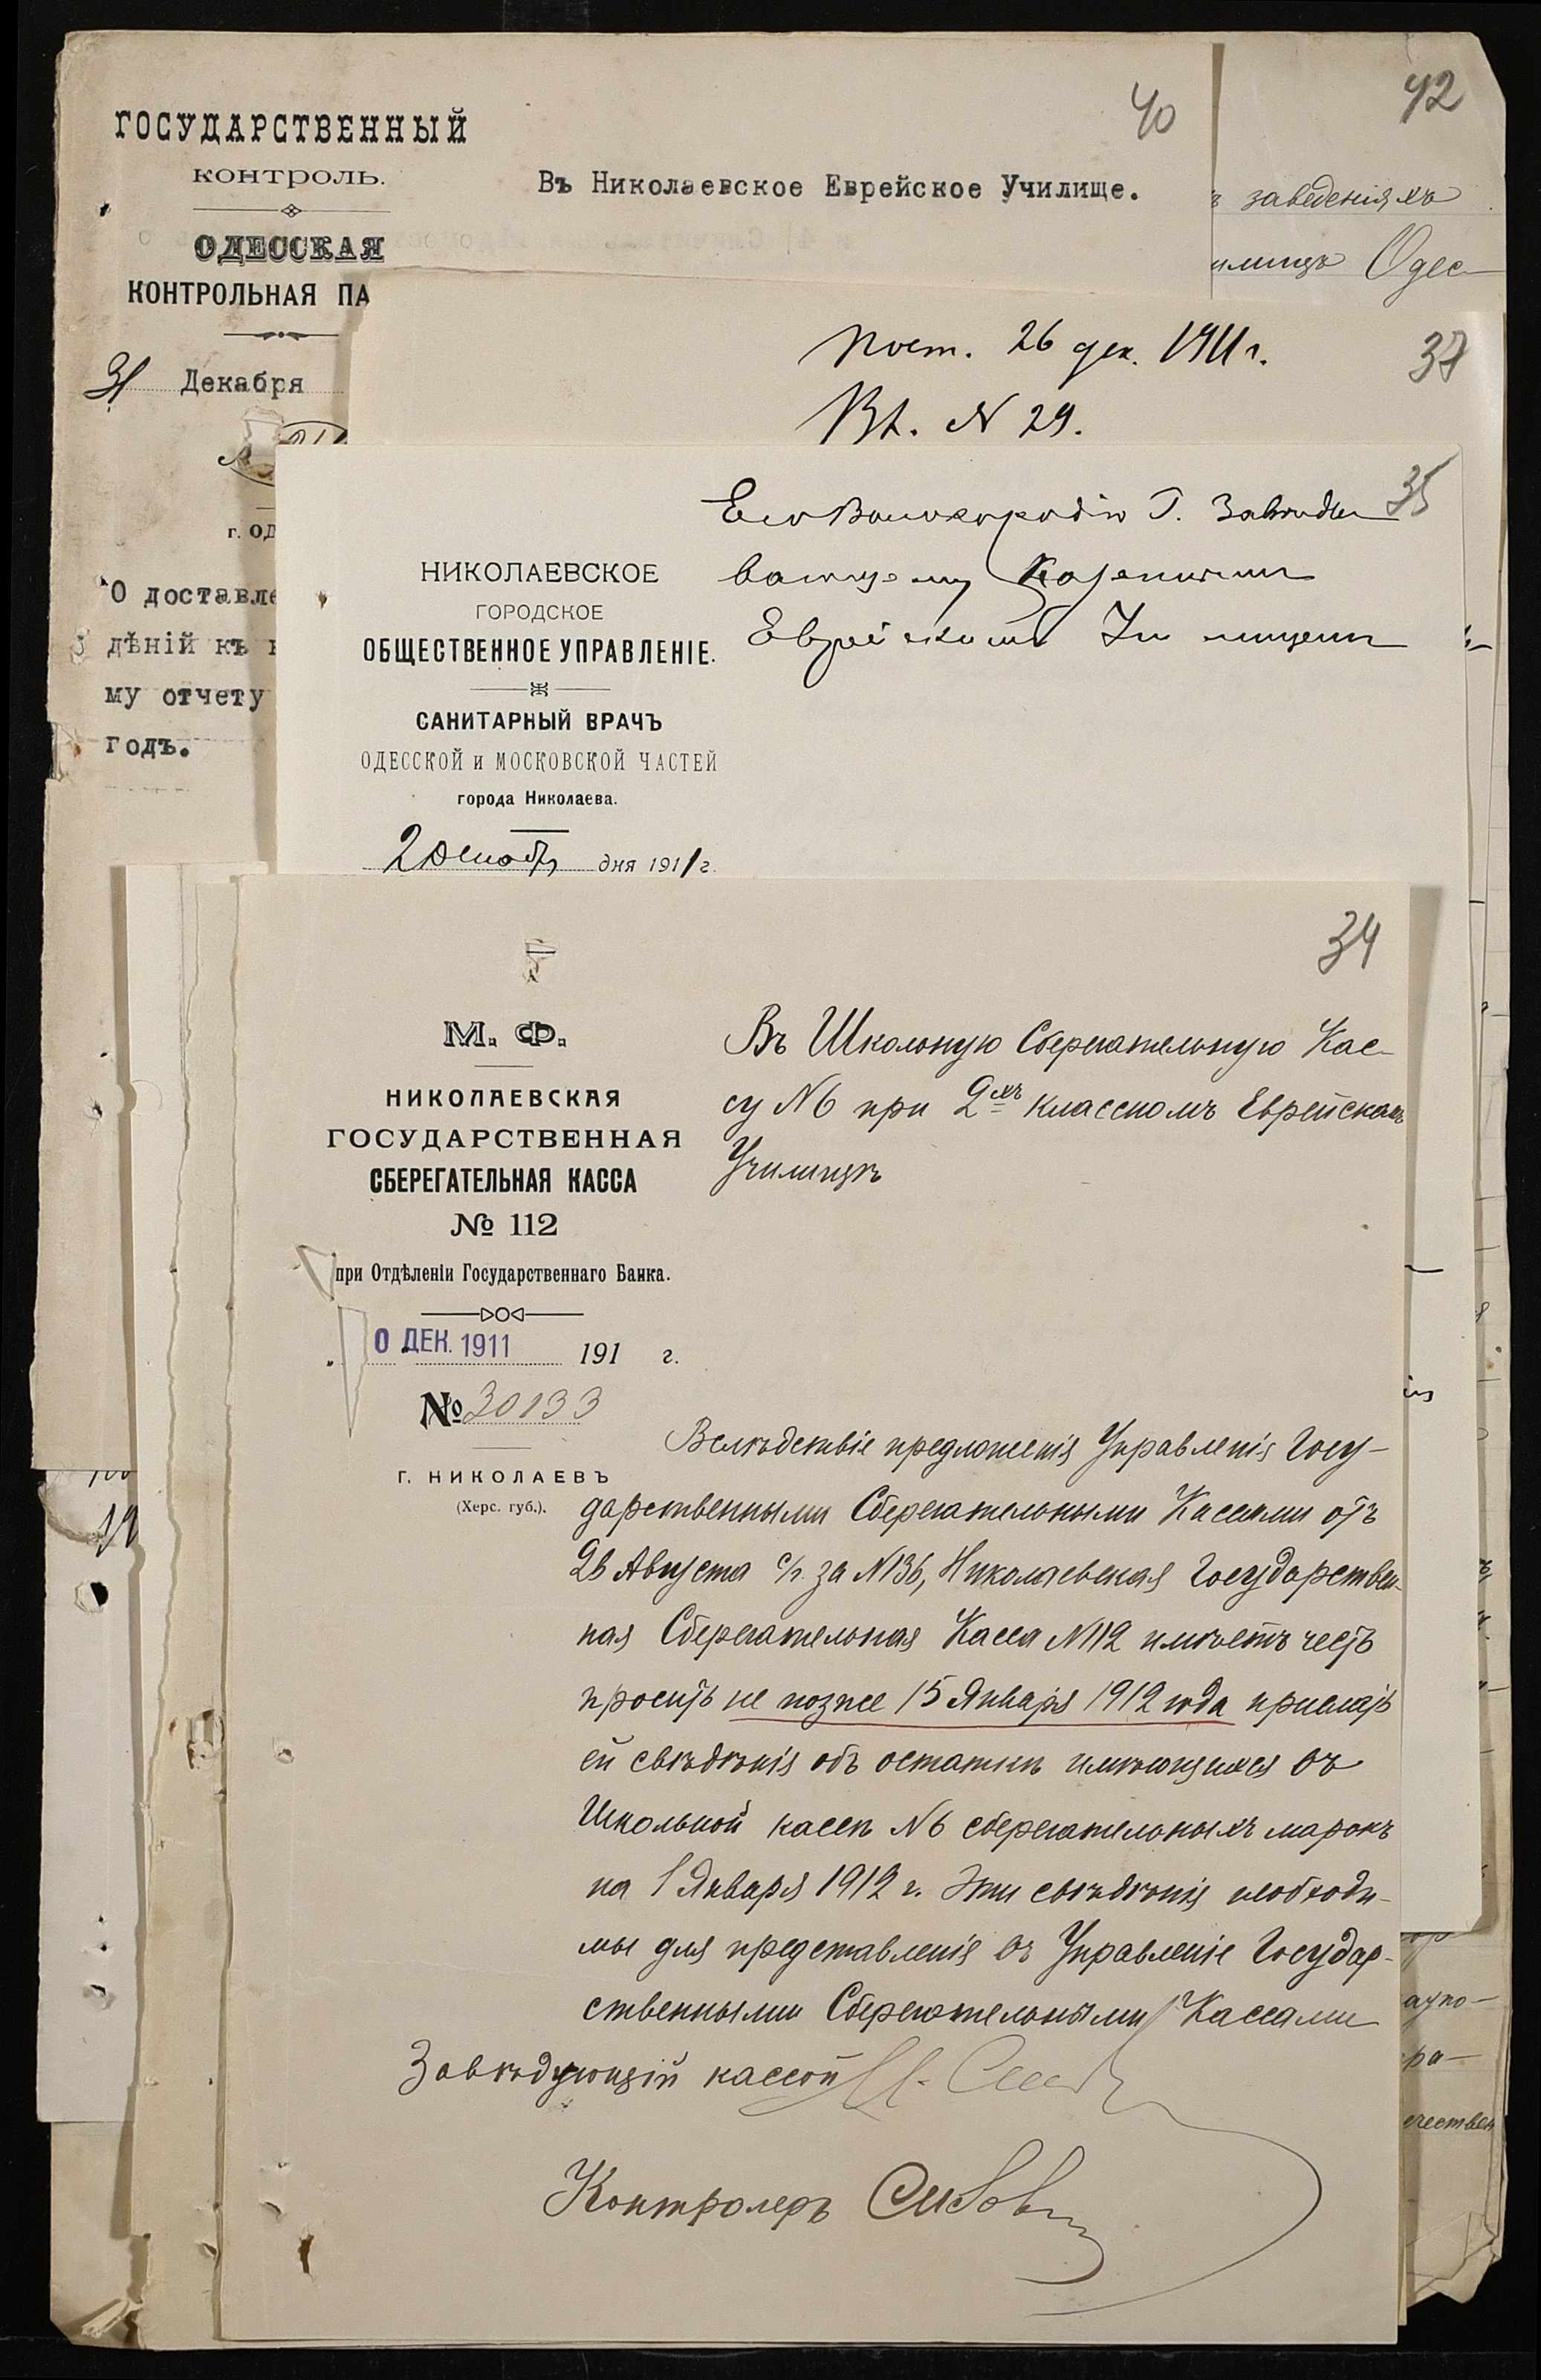 40
42
ГОСУДАРСТВЕННЫЙ
КОНТРОЛЬ.
ОДЕССКАЯ
КОНТРОЛЬНАЯ ПА
31 Декабря
г. ОД
О доставле
дѣній къ
му отчету
годъ.
Въ Николаевское Еврейское Училище.
заведеніяхъ
илищъ Одес-
Пост. 26 дек. 1911 г.
37
Вх. N 29.
35
Его Высокородію Г. Завѣды
вающему Казеннымъ
Еврейскимъ Училищемъ
НИКОЛАЕВСКОЕ
ГОРОДСКОЕ
ОБЩЕСТВЕННОЕ УПРАВЛЕНІЕ.
САНИТАРНЫЙ ВРАЧЪ
ОДЕССКОЙ и МОСКОВСКОЙ ЧАСТЕЙ
города Николаева.
2 Декабря дня 1911 г.
34
М. Ф.
НИКОЛАЕВСКАЯ
ГОСУДАРСТВЕННАЯ
СБЕРЕГАТЕЛЬНАЯ КАССА
№ 112
при Отдѣленіи Государственнаго Банка.
0 ДЕК. 1911 191 г.
№ 30133
г. НИКОЛАЕВЪ
(Херс. губ.).
Въ Школьную Сберегательную Кас-
су N6 при 2хъ классномъ Еврейскомъ
Училищѣ
Вслѣдствіе предложенія Управленія Госу-
дарственными Сберегательными Кассами отъ
26 Августа с/г. за N136, Николаевская Государствен-
ная Сберегательная Касса N112 имѣетъ честь
просить не позже 15 Января 1912 года прислать
ей свѣдѣнія объ остаткѣ имѣющихся въ
Школьной кассѣ N6 сберегательныхъ марокъ
на 1 Января 1912 г. Эти свѣдѣнія необходи-
мы для представленія въ Управленіе Государ-
ственными Сберегательными Кассами
Завѣдующій кассой
Контролеръ